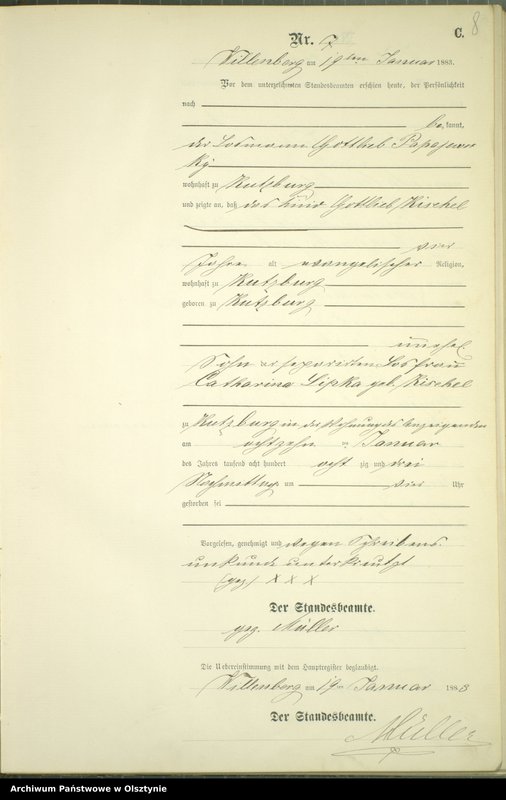 C. 8
Nr. 7
Willenberg am 19ten Januar 1883.
Vor dem unterzeichneten Standesbeamten erschien heute, der Persönlichkeit
nach
bekannt,
der Losmann Gottlieb Papajews
ky
wohnhaft zu Kutzburg
und zeigte an, daß das Kind Gottlieb Kischel
vier
Jahre alt evangelischer Religion,
wohnhaft zu Kutzburg
geboren zu Kutzburg
unehel.
Sohn der separirten Losfrau
Catharina Lipka geb. Kischel
zu Kutzburg in der Wohnung des Anzeigenden
am achtzehn ten Januar
des Jahres tausend acht hundert acht zig und drei
Nachmittags um vier Uhr
gestorben sei
Vorgelesen, genehmigt und wegen Schreibens
unkunde unterkreutzt
(gez) X X X
Der Standesbeamte.
gez. Müller
Die Uebereinstimmung mit dem Hauptregister beglaubigt.
Willenberg am 19ten Januar 1883
Der Standesbeamte.
Müller
Archiwum Państwowe w Olsztynie